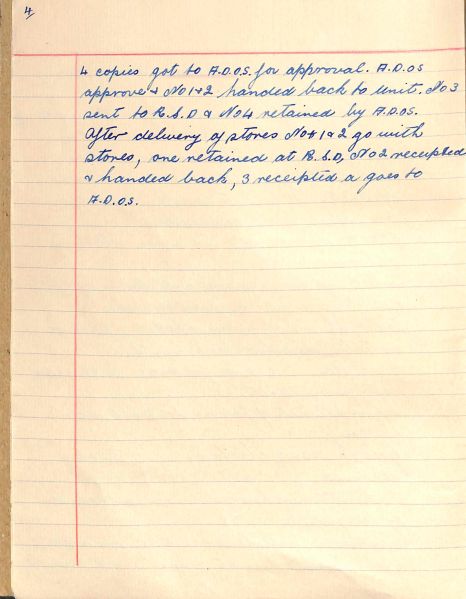 4
4 copies got to A.D.O.S. for approval. A.D.OS
approve & No 1 & 2 handed back to Unit. No 3
sent to R.S.D & No4 retained by A.D.OS.
After delivery of stores No 1 & 2 go with
stores, one retained at R.S.D, No 2 receipted
& handed back, 3 receipted a goes to
A.D.O.S.